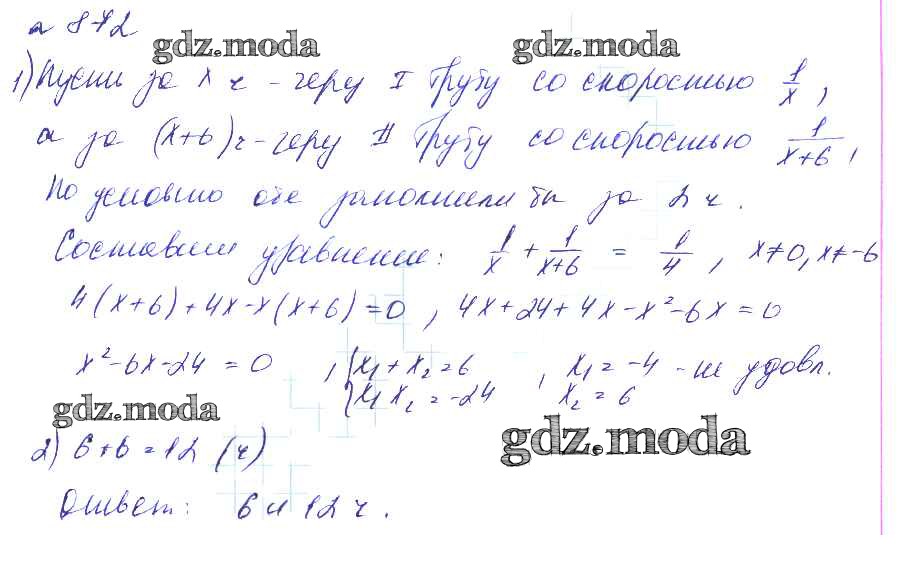 № 872
gdz.moda gdz.moda
1) Пусть за x ч - через I трубу со скоростью 1/x ,
а за (x+6) ч - через II трубу со скоростью 1/(x+6) ,
По условию обе заполнили бы за 4 ч .
Составим уравнение: 1/x + 1/(x+6) = 1/4 , x≠0, x≠-6
4(x+6)+4x-x(x+6)=0 , 4x+24+4x-x²-6x=0
x²-6x-24=0 , {x₁+x₂=6 , x₁=-4 - не удовл.
{x₁x₂=-24 x₂=6
gdz.moda gdz.moda
2) 6+6=12 (ч)
Ответ: 6 и 12 ч .